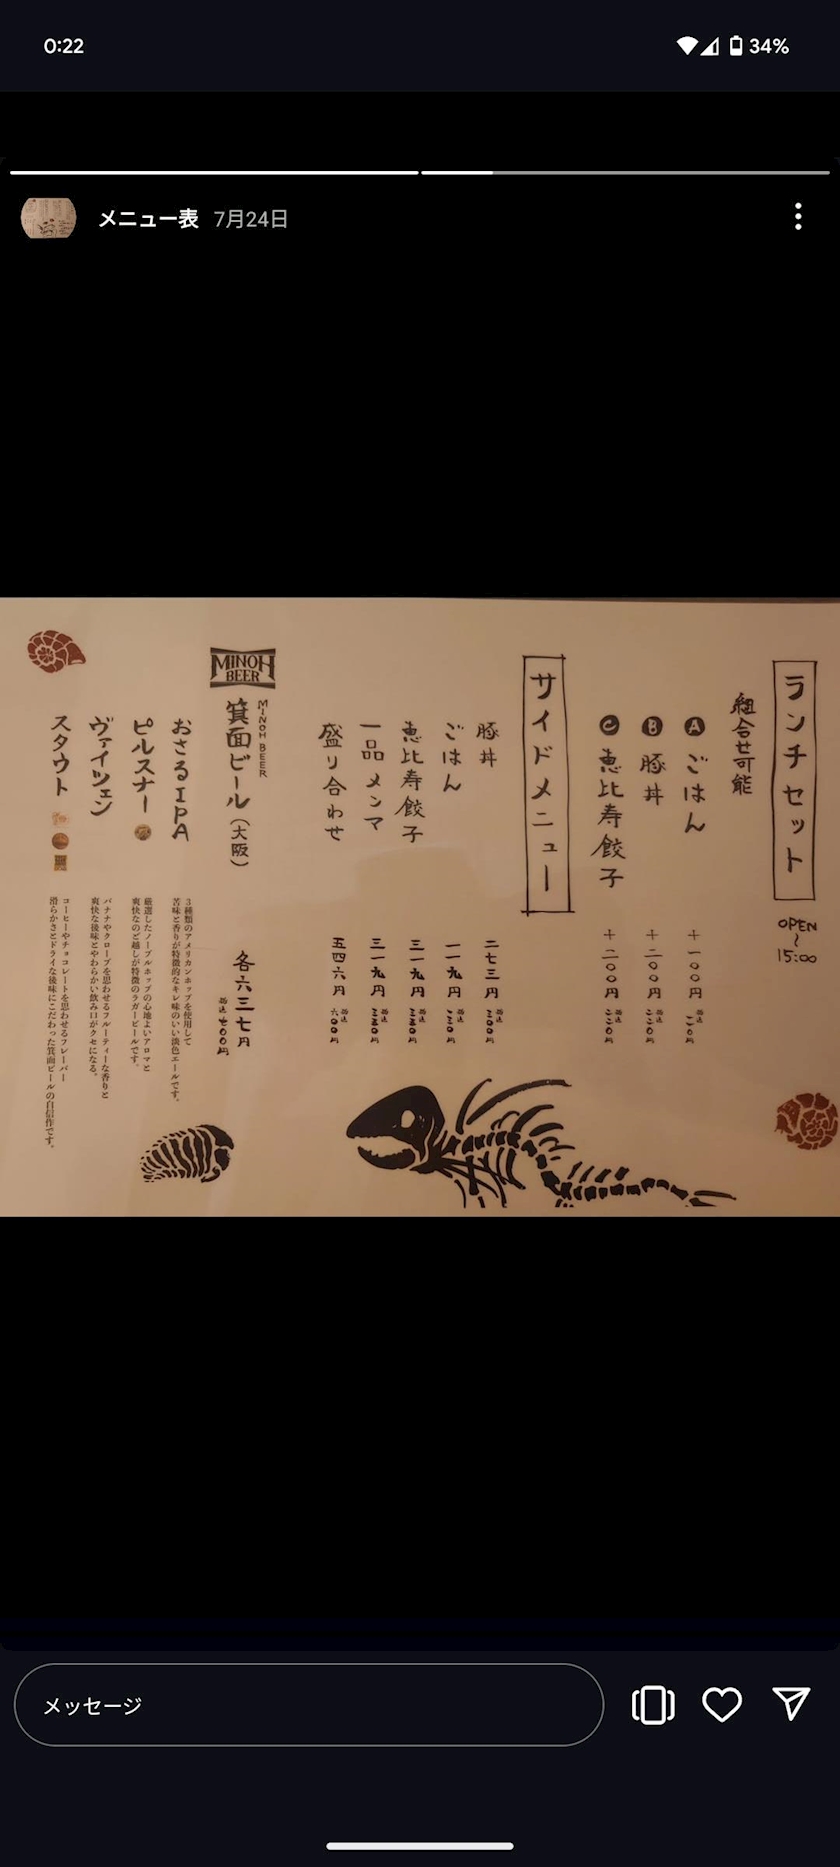 0:22
34%
メニュー表 7月24日
ランチセット
OPEN
~
15:00
組合せ可能
A ごはん +一〇〇円
B 豚丼 +二〇〇円 税込二二〇円
C 恵比寿餃子 +二〇〇円 税込二二〇円
サイドメニュー
豚丼 二七三円 税込三〇〇円
ごはん
恵比寿餃子 三一九円
一品メンマ 三一九円
盛り合わせ 五四六円 税込六〇〇円
MINOH BEER
MINOH BEER
箕面ビール(大阪) 各六三七円 税込七〇〇円
おさるIPA
3種類のアメリカンホップを使用して
苦味と香りが特徴的なキレ味のいい淡色エールです。
ピルスナー
厳選したノーブルホップの心地よいアロマと
爽快なのど越しが特徴のラガービールです。
ヴァイツェン
バナナやクローブを思わせるフルーティーな香りと
爽快な後味とやわらかい飲み口がクセになる。
スタウト
コーヒーやチョコレートを思わせるフレーバー
滑らかさとドライな後味にこだわった箕面ビールの自信作です。
メッセージ